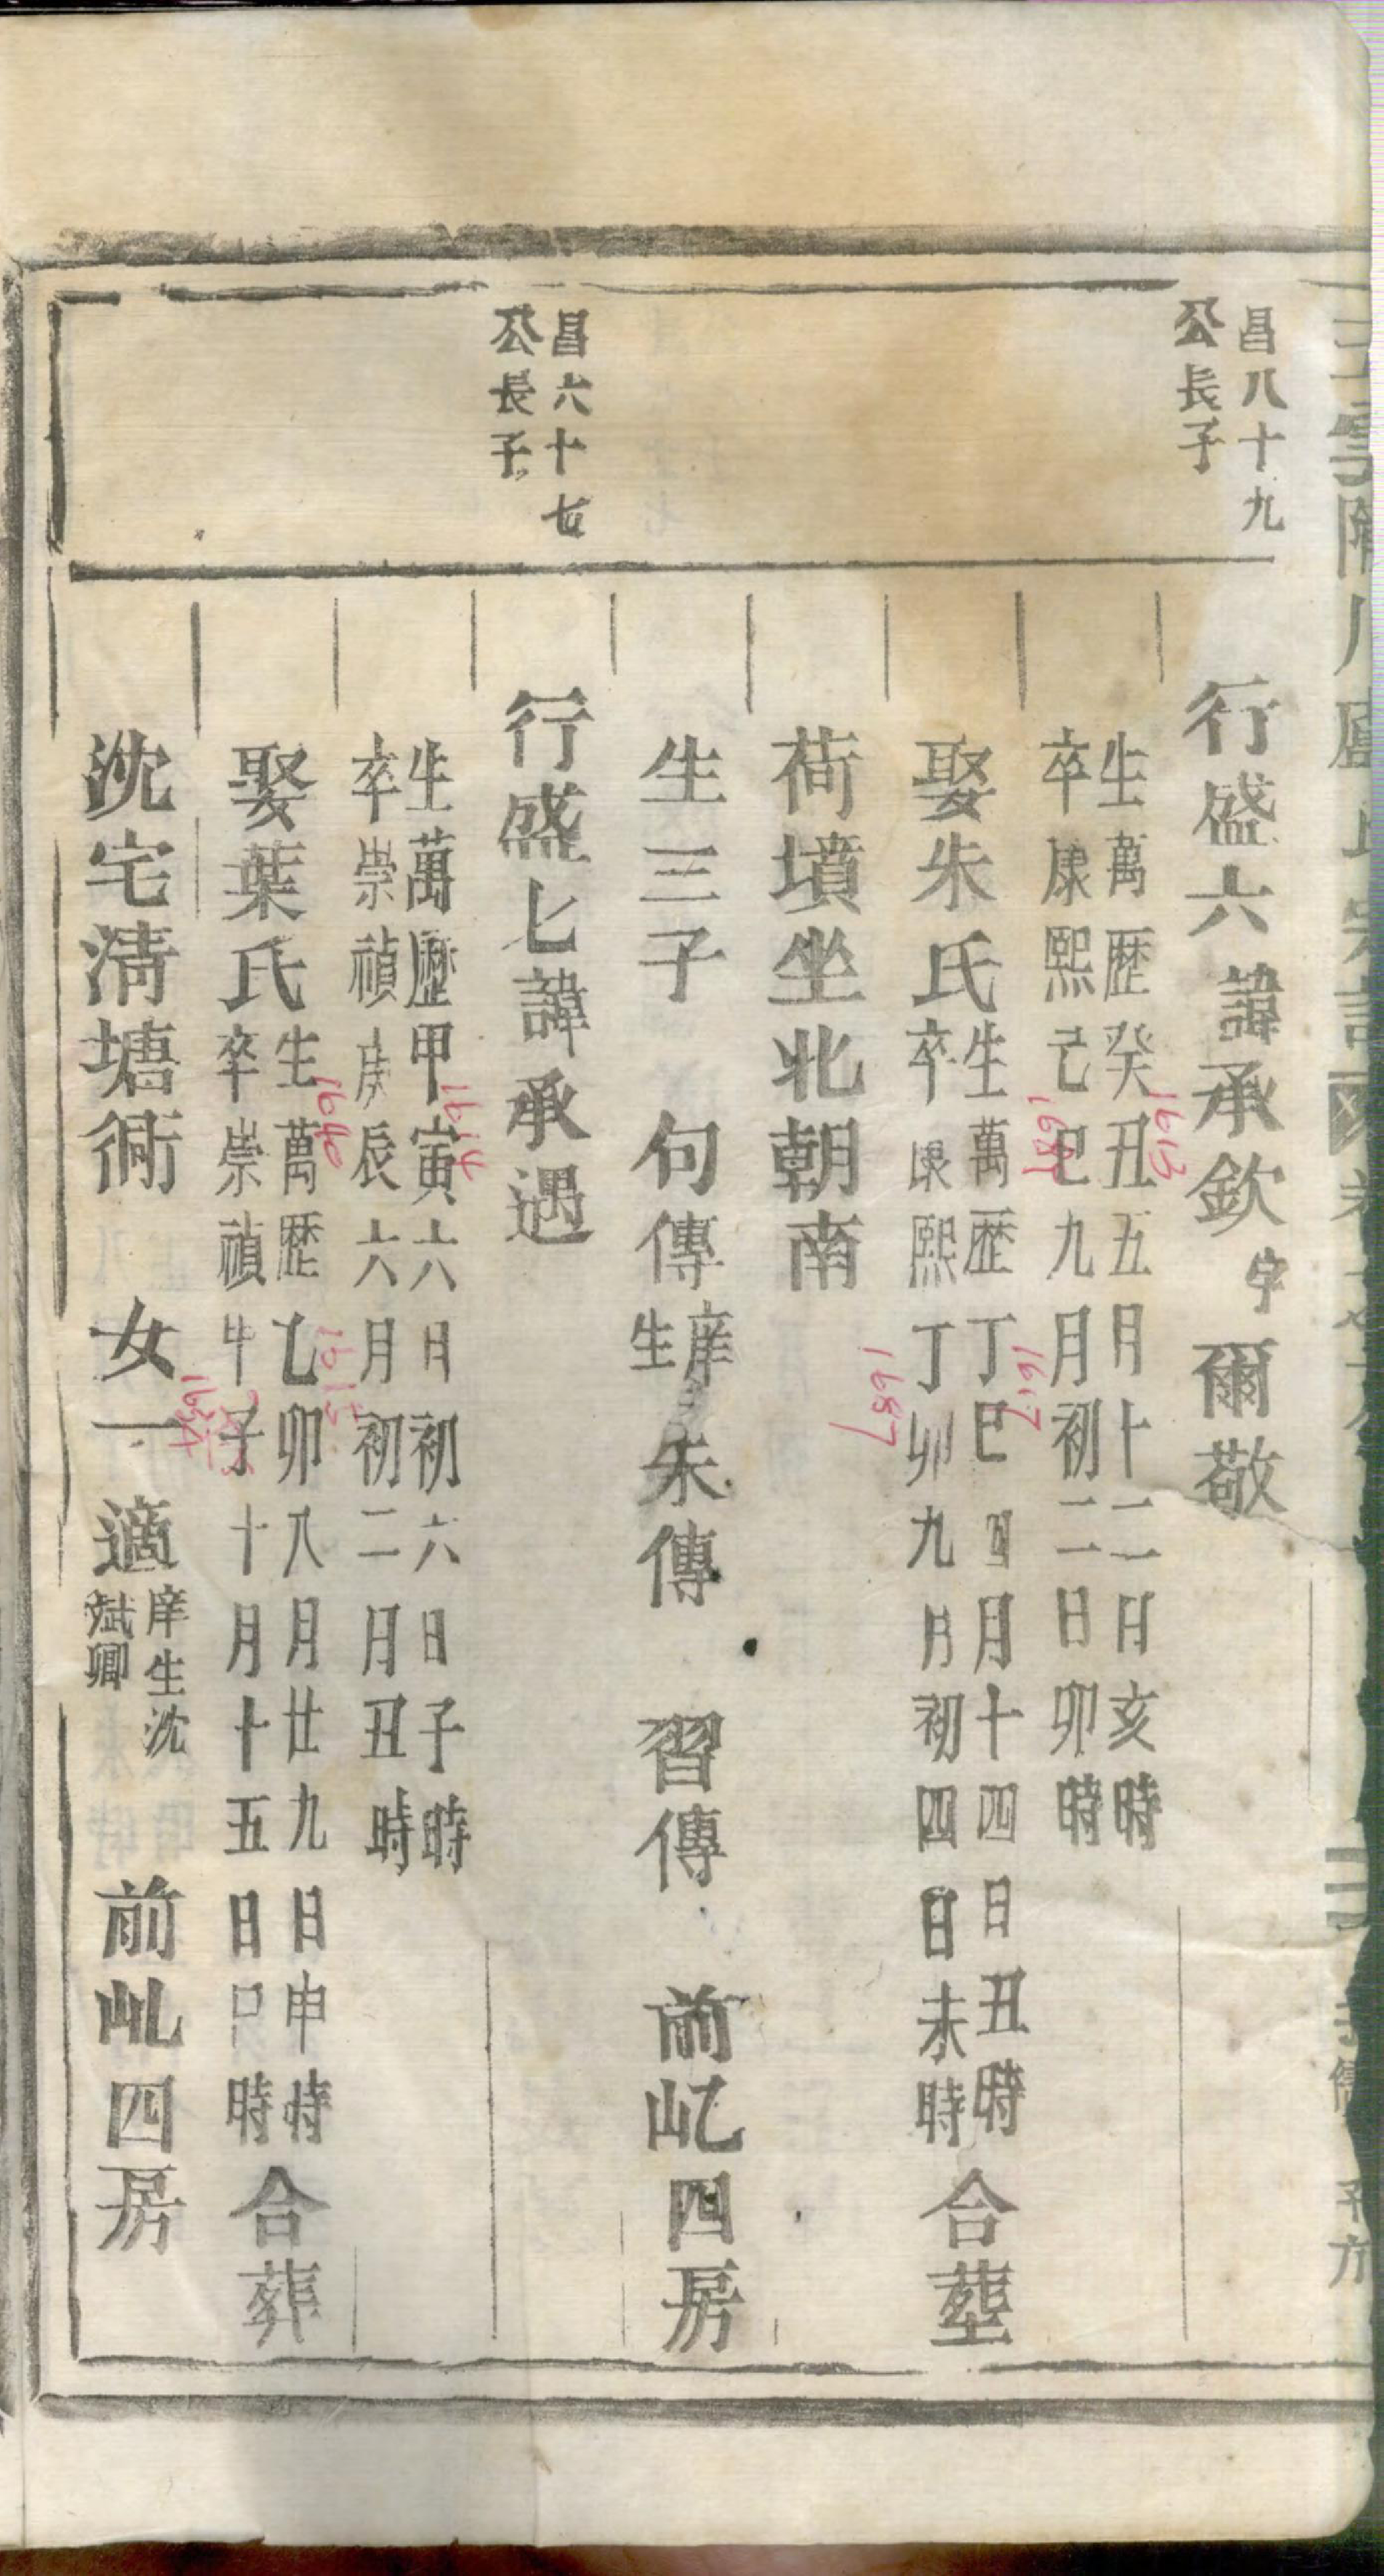 昌八十九
公長子
行盛六諱承欽字爾敬
生萬歷癸丑五月十二日亥時
1613
卒康熙己巳九月初二日卯時
1689
娶朱氏
生萬歷丁巳四月十四日丑時
1617
卒康熙丁卯九月初四日未時
1687
合塟
荷墳坐北朝南
生三子 句傳庠生 朱傳 習傳 前屺四房
昌六十七
公長子
行盛七諱承遇
生萬歷甲寅六月初六日子時
1614
卒崇禎庚辰六月初二日丑時
1640
娶葉氏
生萬歷乙卯八月廿九日申時
1615
卒崇禎 子十月十五日 時
合葬
沈宅淸塘衕 女一適庠生沈斌卿 前屺四房